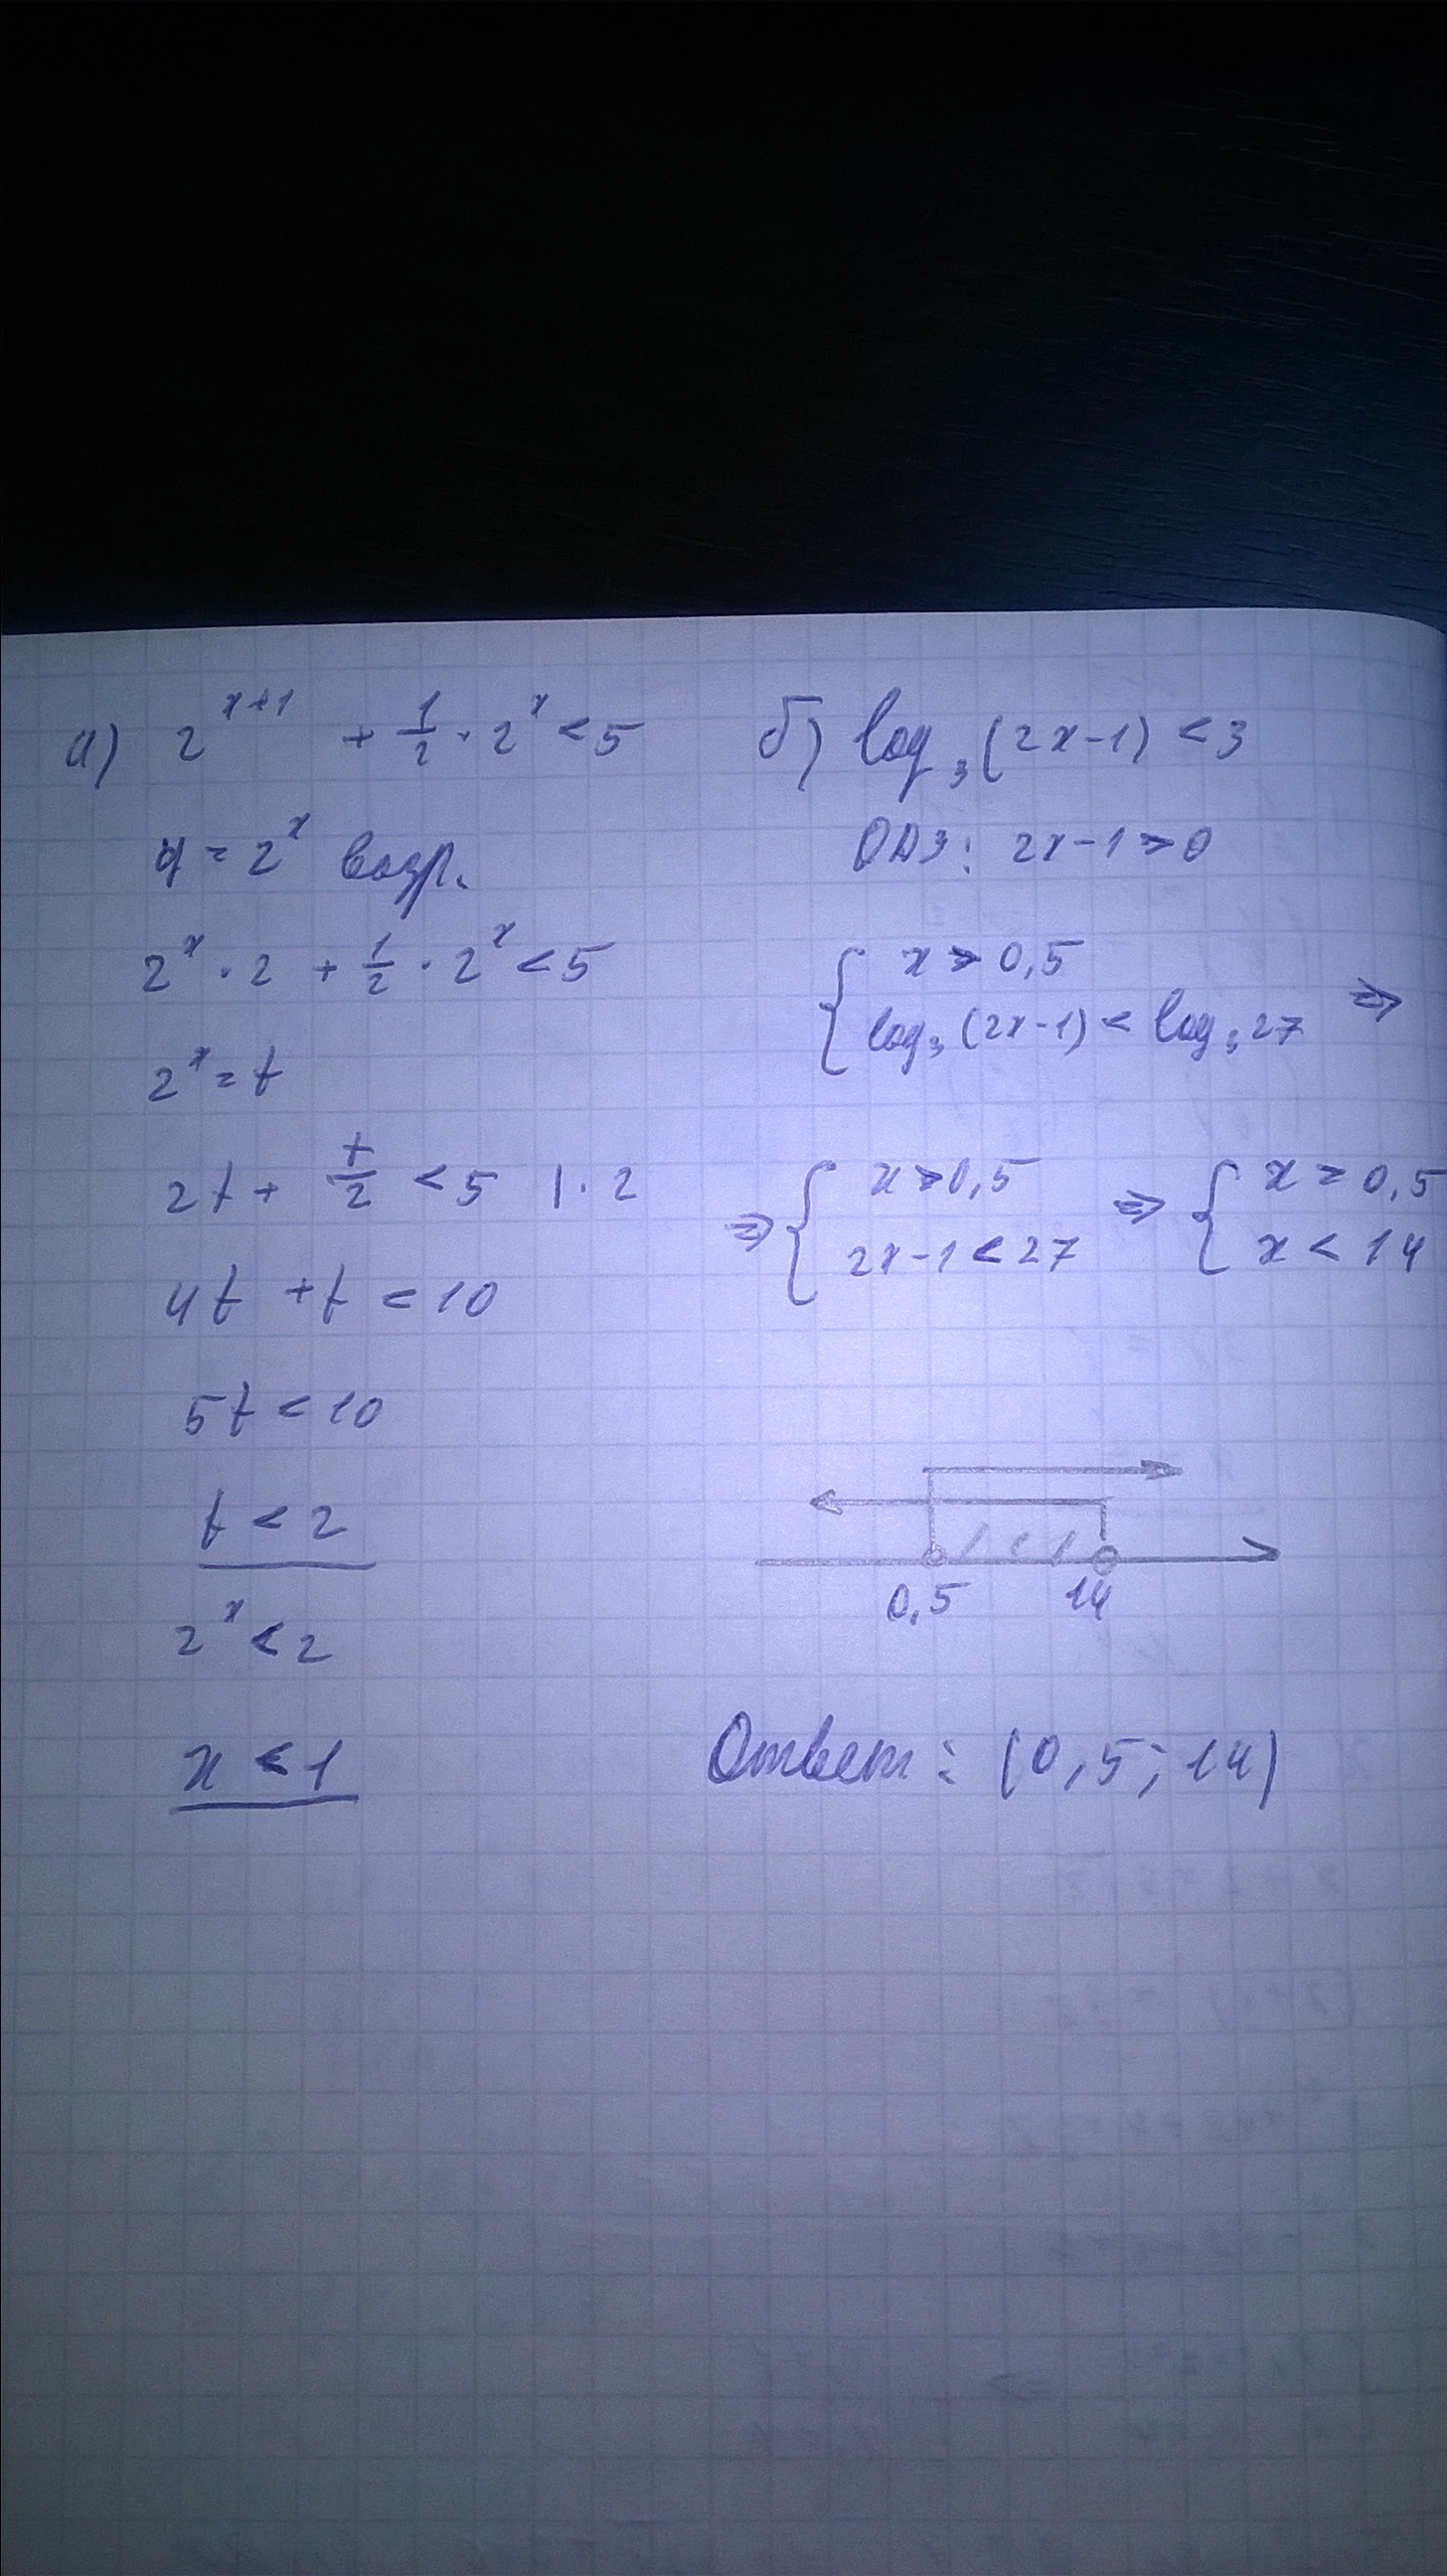 а) 2^{x+1} + 1/2 · 2^x < 5
y = 2^x возр.
2^x · 2 + 1/2 · 2^x < 5
2^x = t
2t + t/2 < 5 | · 2
4t + t < 10
5t < 10
t < 2
2^x < 2
x < 1
б) log₃(2x-1) < 3
ОДЗ: 2x-1 > 0
{ x > 0,5
log₃(2x-1) < log₃27 ⇒
⇒ { x > 0,5 ⇒ { x > 0,5
2x-1 < 27 x < 14
0,5 14
Ответ: (0,5; 14)